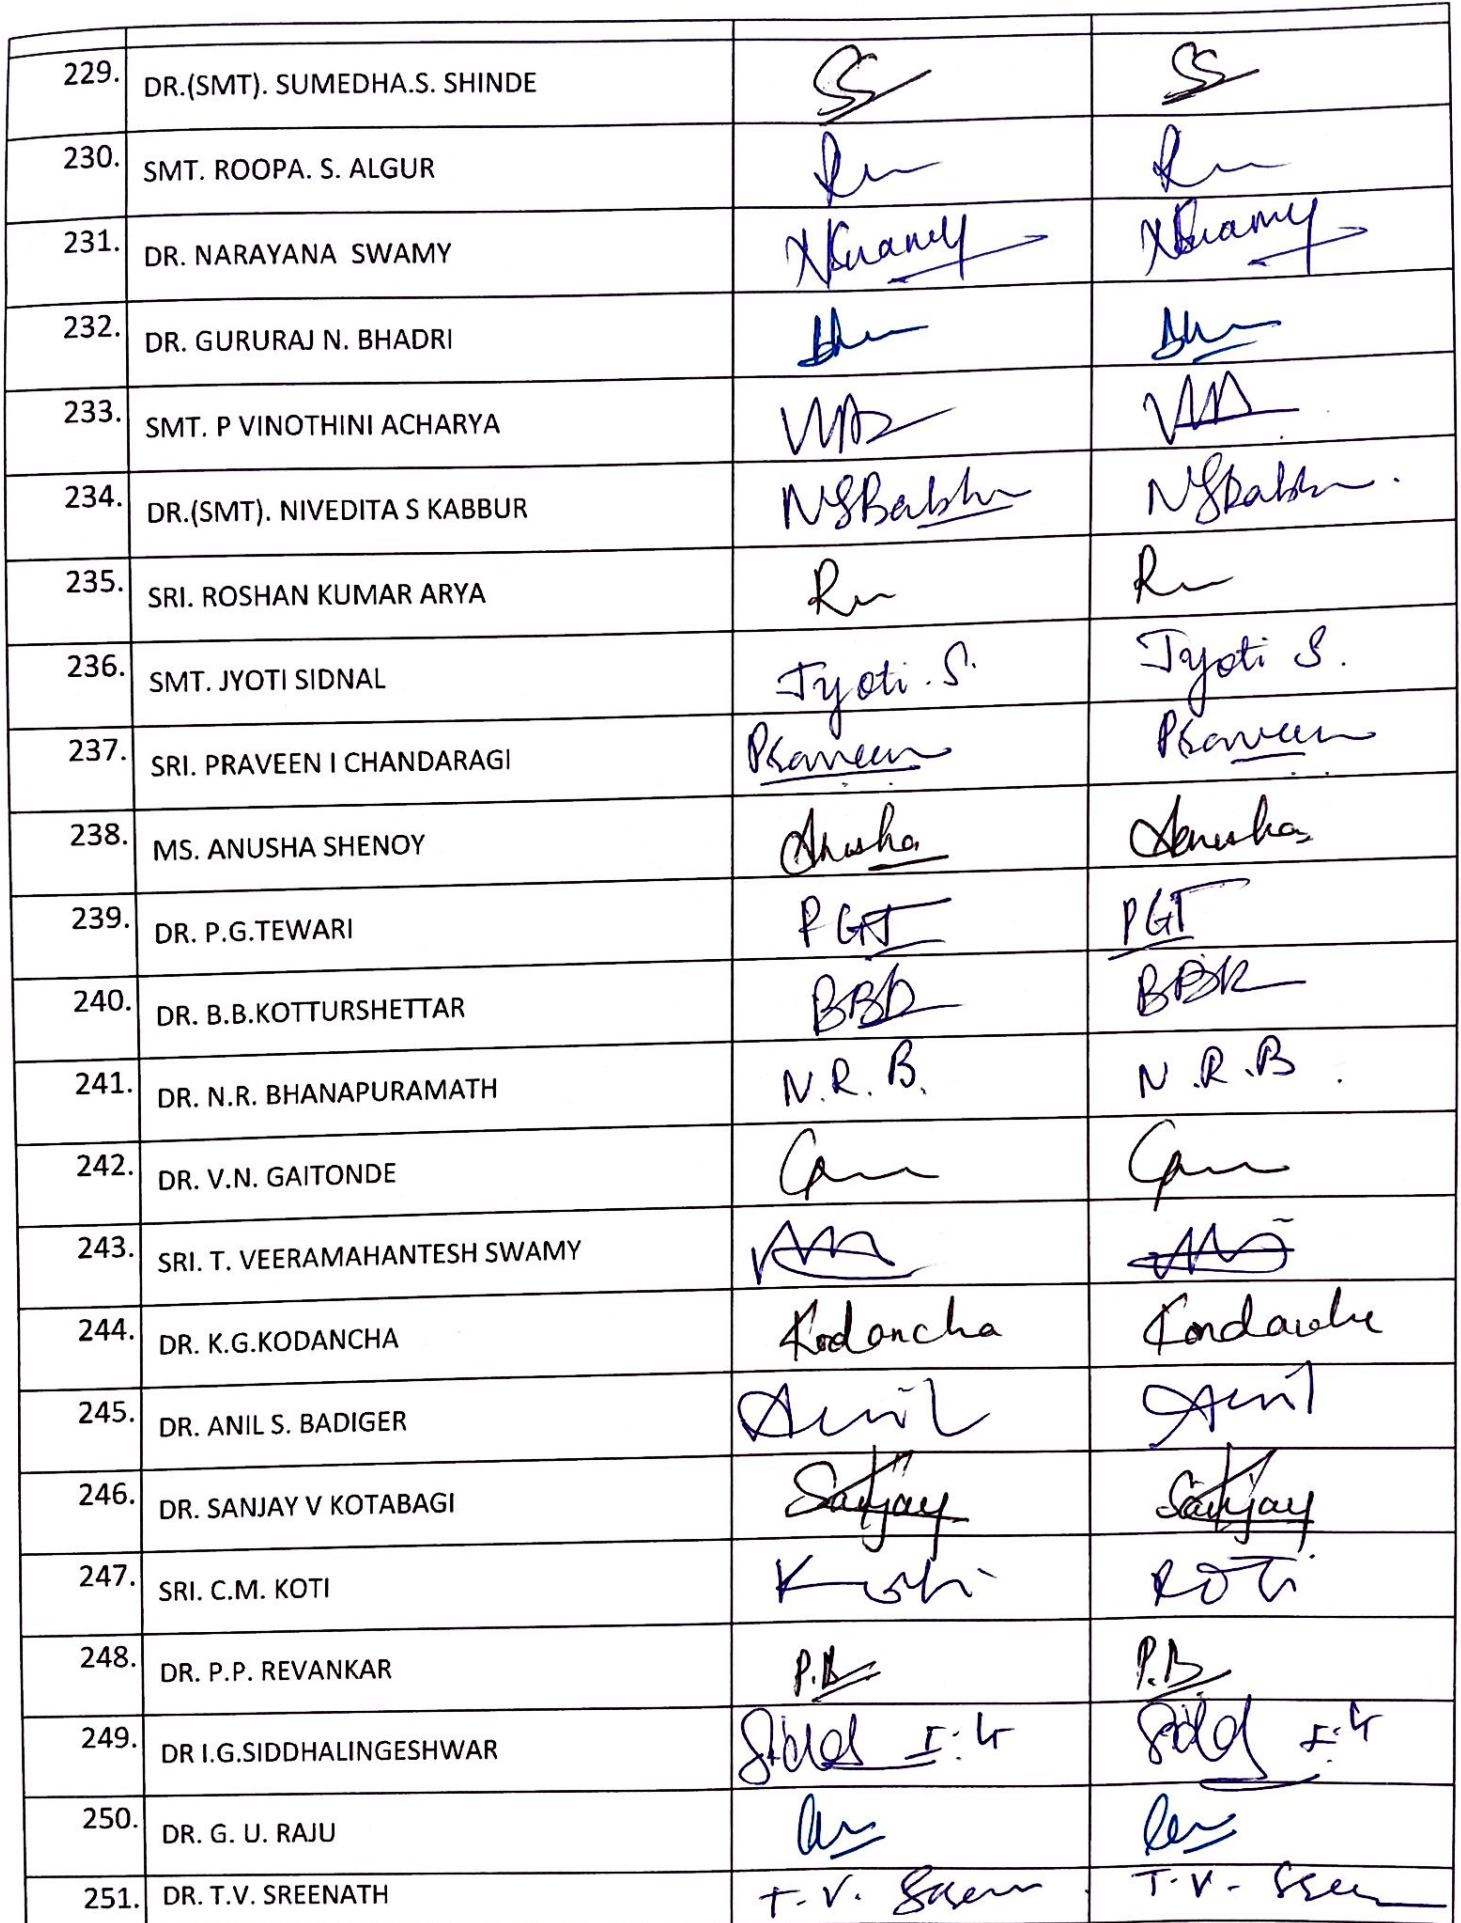 229. DR.(SMT). SUMEDHA.S. SHINDE SS SS
230. SMT. ROOPA. S. ALGUR
231. DR. NARAYANA SWAMY
232. DR. GURURAJ N. BHADRI
233. SMT. P VINOTHINI ACHARYA
234. DR.(SMT). NIVEDITA S KABBUR
235. SRI. ROSHAN KUMAR ARYA
236. SMT. JYOTI SIDNAL Jyoti. S. Jyoti S.
237. SRI. PRAVEEN I CHANDARAGI Praveen Praveen
238. MS. ANUSHA SHENOY Anusha Anusha
239. DR. P.G.TEWARI PGT PGT
240. DR. B.B.KOTTURSHETTAR BBK
241. DR. N.R. BHANAPURAMATH N.R.B. N.R.B.
242. DR. V.N. GAITONDE
243. SRI. T. VEERAMAHANTESH SWAMY
244. DR. K.G.KODANCHA Kodancha
245. DR. ANIL S. BADIGER Anil Anil
246. DR. SANJAY V KOTABAGI Sanjay Sanjay
247. SRI. C.M. KOTI Koti KOTi
248. DR. P.P. REVANKAR
249. DR I.G.SIDDHALINGESHWAR
250. DR. G. U. RAJU
251. DR. T.V. SREENATH T.V. T.V.